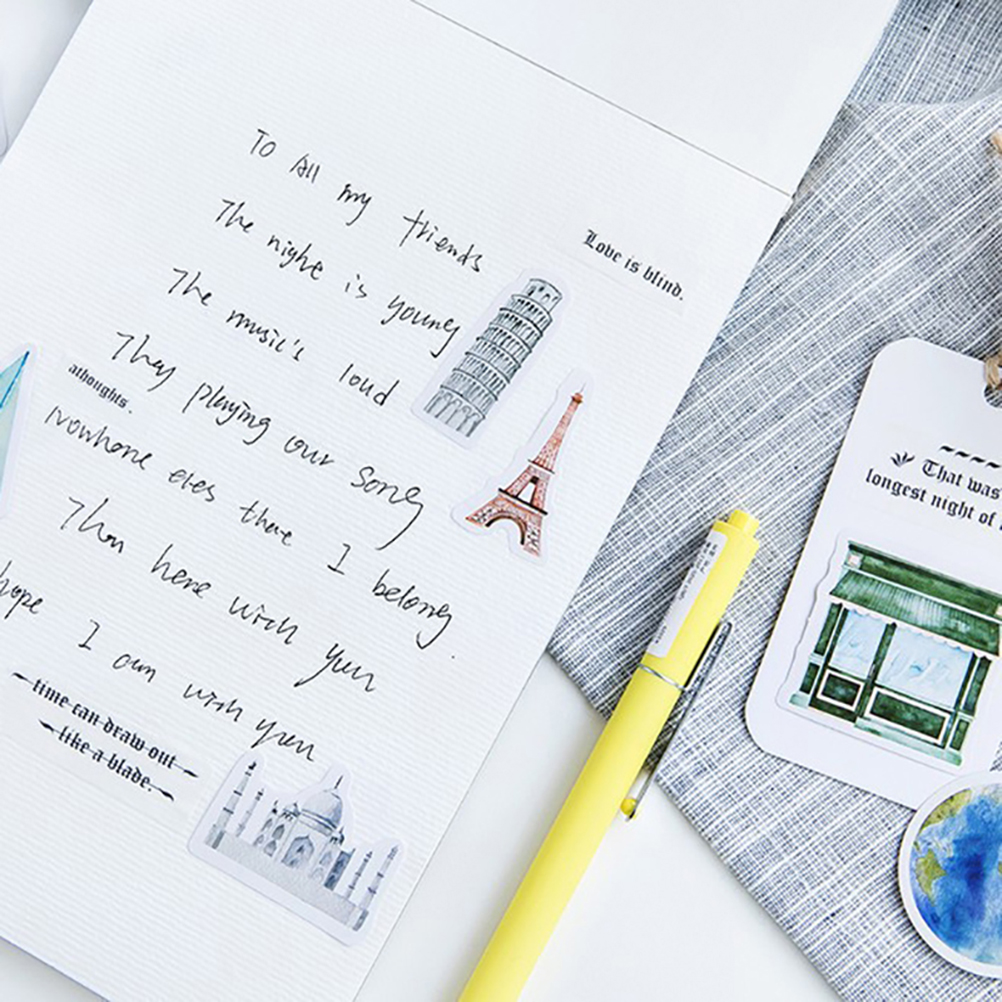 To All my friends
Love is blind.
The night is young
The music's loud
They playing our song
athoughts.
Nowhere else there I belong.
Than here with you
hope I am with you
time can draw out
like a blade.
That was
longest night of